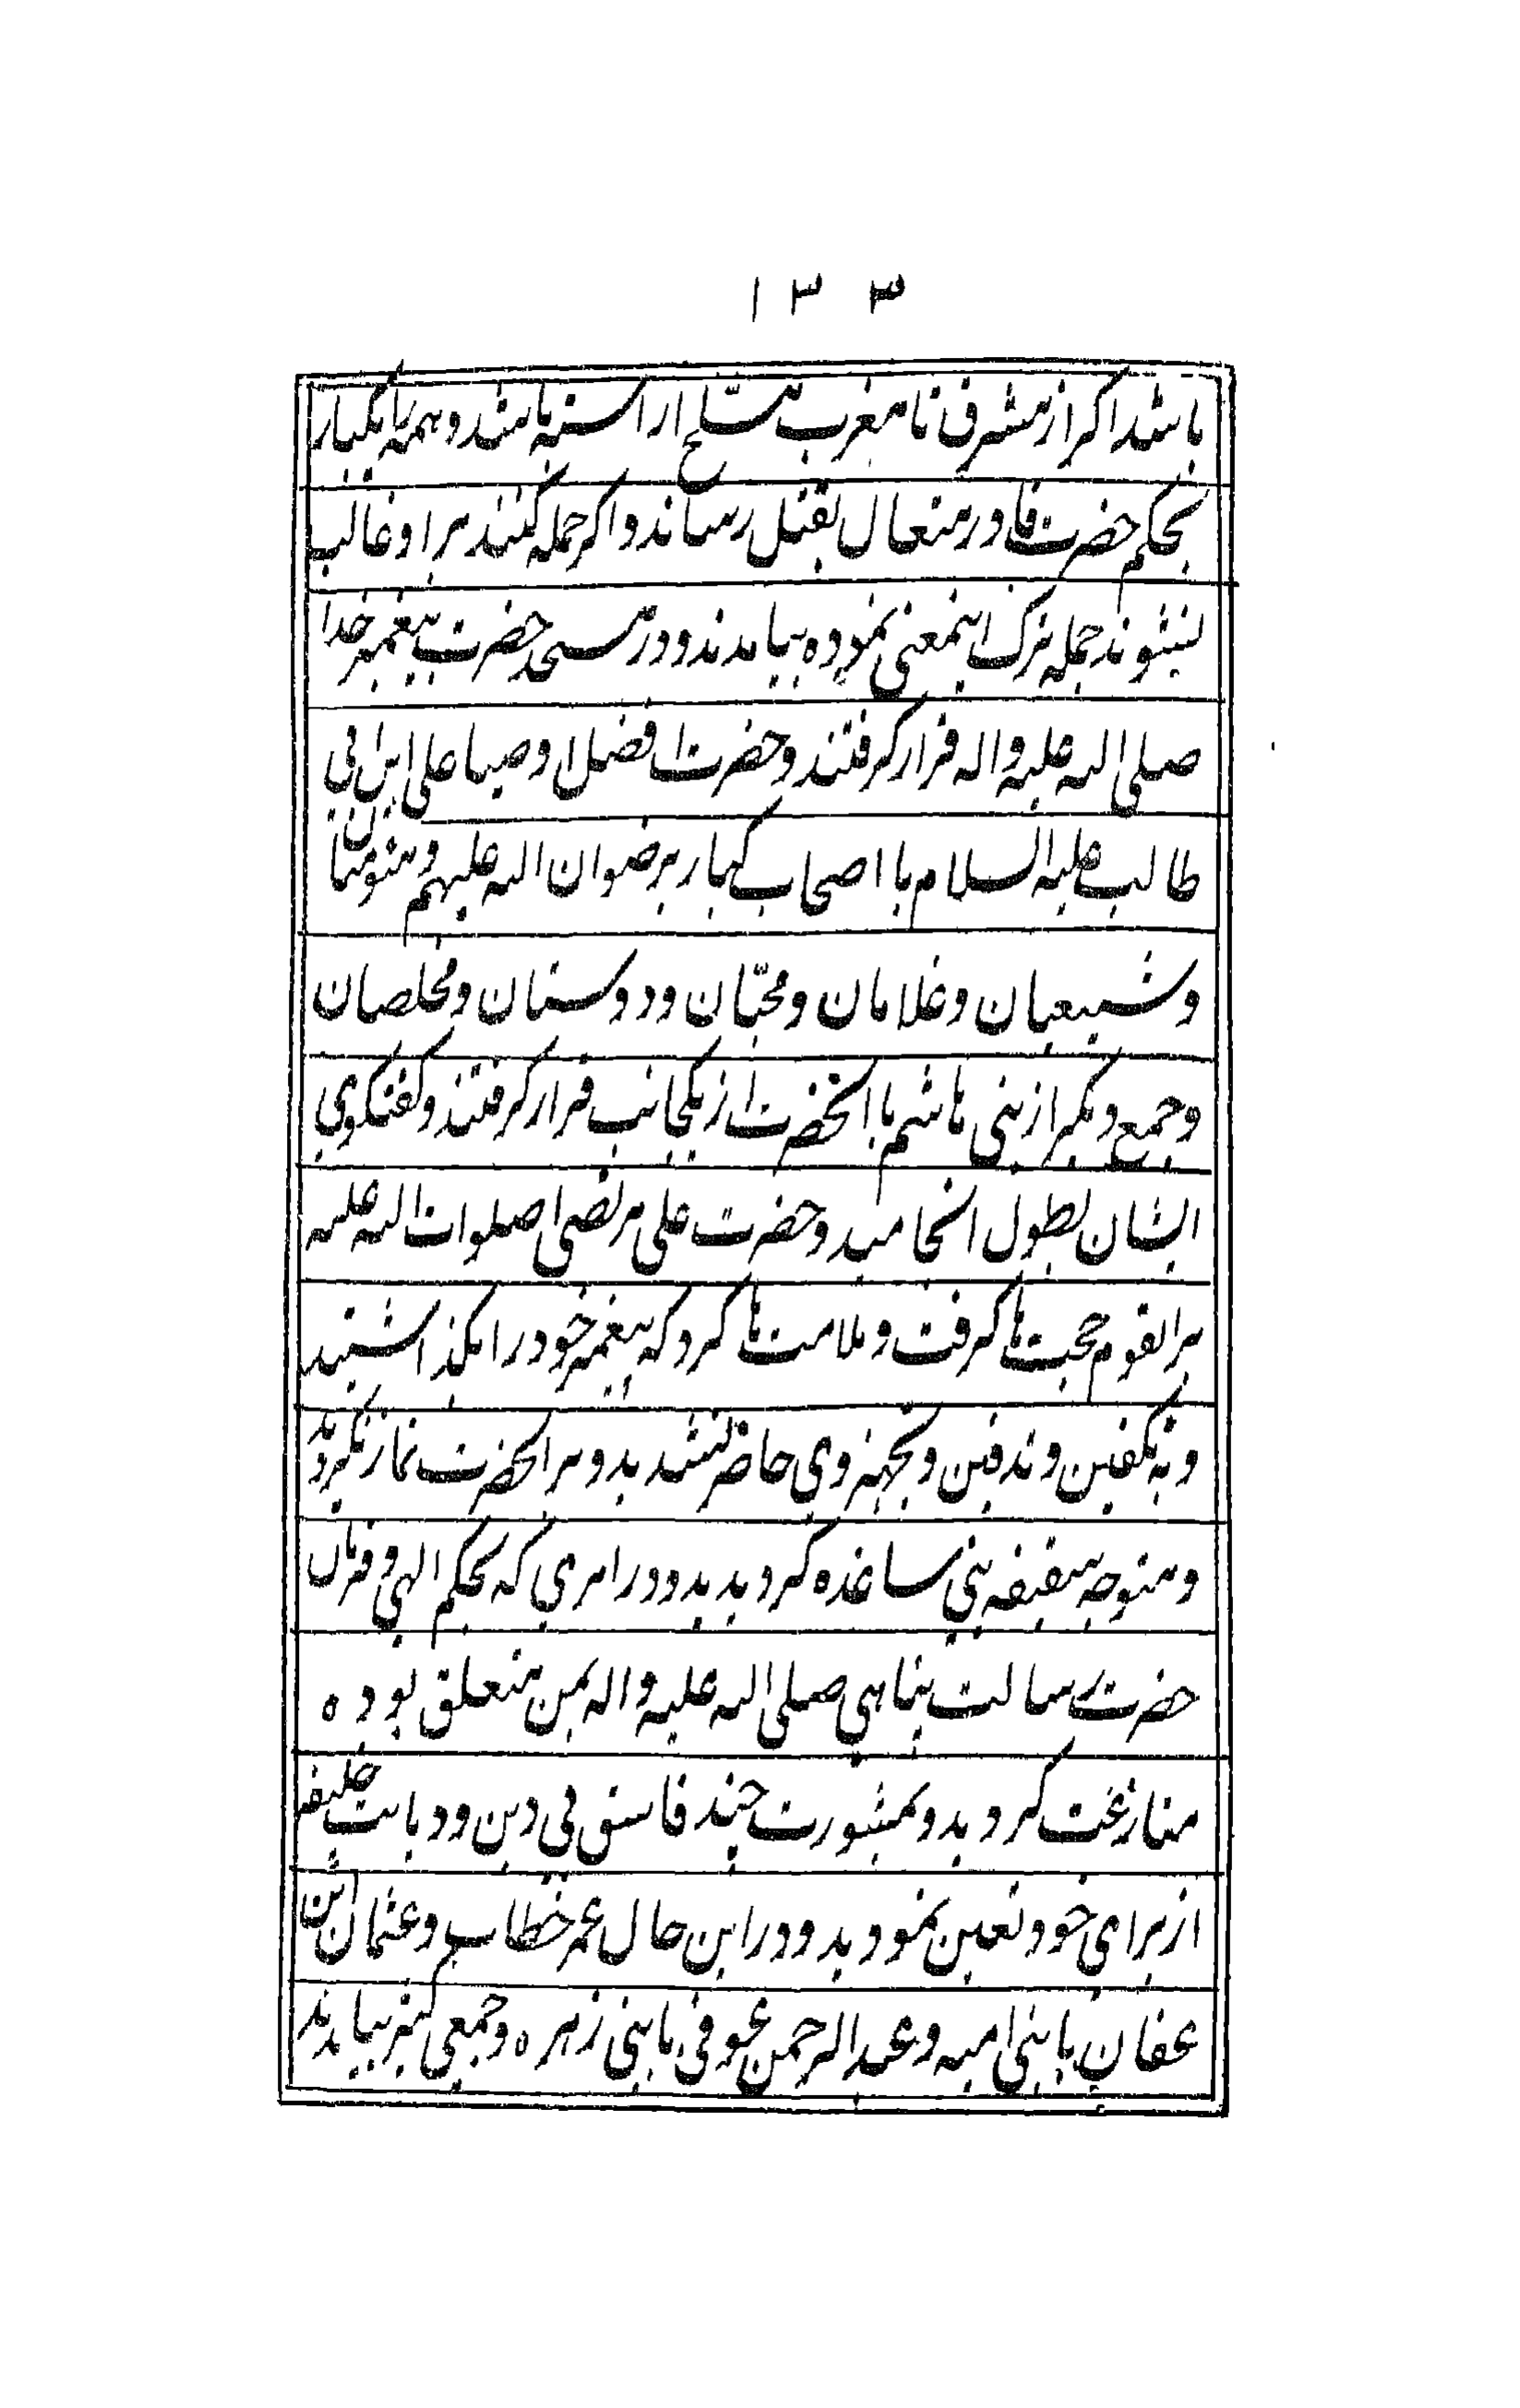 ۱۳۳
باشد اکر از مشرق تا مغرب مسلّح اراسته باشد و همه را بکبار
بحکم حضرت قادر متعال بقتل رساند و اکر حمله کنند بر او غالب
نشوند جمله ترک اینمعنی نموده بیامدند و در مسجد حضرت پیغمبر خدا
صلی الله علیه واله قرار کرفتند و حضرت افضل اوصیا علی ابن ابی
طالب علیه السلام با اصحاب کبار رضوان الله علیهم و مئومنان
وشیعیان وغلامان و محبّان و دوستان و مخلصان
و جمع دیکر از بنی هاشم با انحضرت از یکجانب قرار کرفتند و کفتکوی
ایشان بطول انجامید و حضرت علی مرتضی صلوات الله علیه
بر انقوم حجت ها کرفت و ملامت ها کرد که پیغمبر خود را بکذاشتید
و به تکفین و تدفین و تجهیز وی حاضر نشدید و بر انحضرت نماز نکردید
و متوجه سقیفه بنی ساعده کردیدید و در امری که بحکم الهی و فرمان
حضرت رسالت پناهی صلی الله علیه واله بمن متعلق بوده
منازعت کردید و بمشورت چند فاسق بی دین و دیانت خلیفه
از برای خود تعین نمودید و در این حال عمر خطاب و عثمان ابن
عفان با بنی امیه و عبدالرحمن عوفی با بنی زهره و جمعی کنیر بیامدند